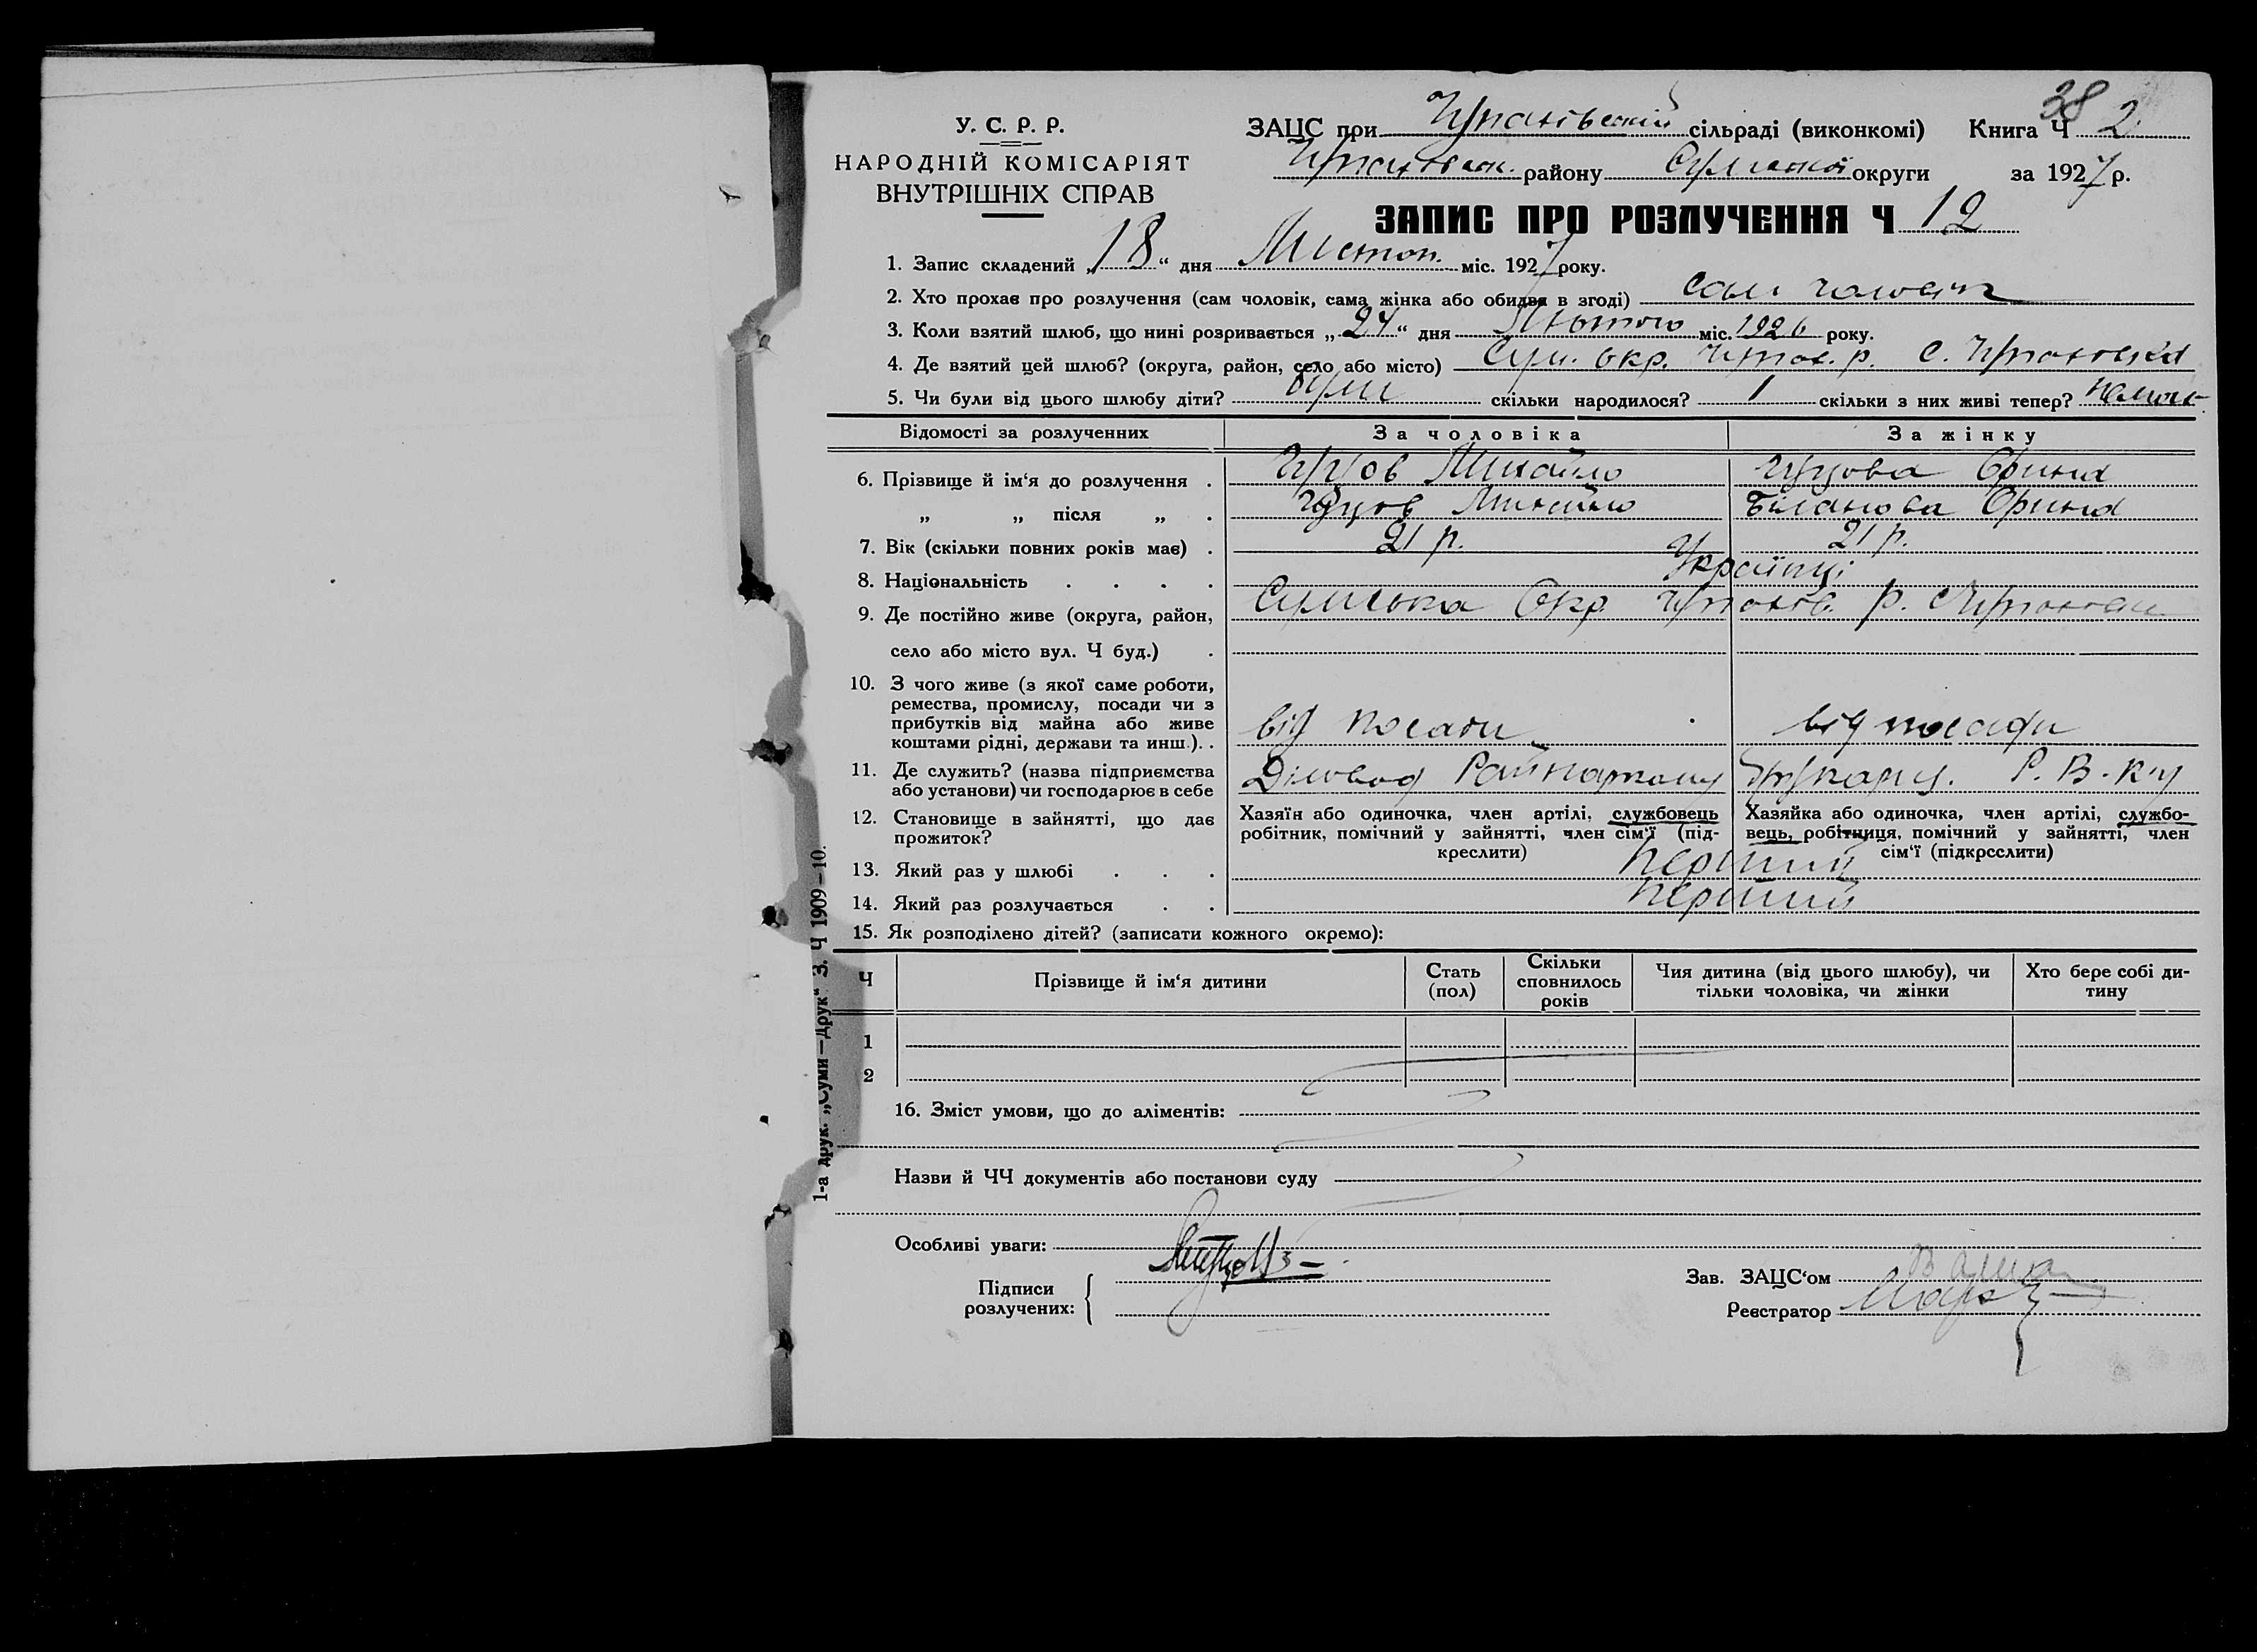 38
У. С. Р. Р.
НАРОДНІЙ КОМІСАРІЯТ
ВНУТРІШНІХ СПРАВ
ЗАЦС при сільраді (виконкомі) Книга Ч 2
району Сумської округи за 1927 р.
ЗАПИС ПРО РОЗЛУЧЕННЯ Ч 12
1. Запис складений „18“ дня Листоп. міс. 1927 року.
2. Хто прохає про розлучення (сам чоловік, сама жінка або обидва в згоді) Сам чоловік
3. Коли взятий шлюб, що нині розривається „24“ дня Лютого міс. 1926 року.
4. Де взятий цей шлюб? (округа, район, село або місто) Сум. Окр. р. с.
5. Чи були від цього шлюбу діти? були скільки народилося? 1 скільки з них живі тепер?
Відомості за розлученних За чоловіка За жінку
6. Прізвище й ім‘я до розлучення . Михайло Орина
„ „ після „ . Михайло Біланова Орина
7. Вік (скільки повних років має) . 21 р. 21 р.
8. Національність . . . . Українці
9. Де постійно живе (округа, район, Сумська Окр. р.
село або місто вул. Ч буд.) .
10. З чого живе (з якої саме роботи,
ремества, промислу, посади чи з
прибутків від майна або живе
коштами рідні, держави та инш.). . від посади від посади
11. Де служить? (назва підприємства
або установи) чи господарює в себе Діловод Р. В. К-у
12. Становище в зайнятті, що дає прожиток? Хазяїн або одиночка, член артілі, службовець робітник, помічний у зайнятті, член сім‘ї (підкреслити) Хазяйка або одиночка, член артілі, службовець, робітниця, помічний у зайнятті, член сім‘ї (підкрсслити)
13. Який раз у шлюбі . . . перший
14. Який раз розлучається . . перший
15. Як розподілено дітей? (записати кожного окремо):
Ч Прізвище й ім‘я дитини Стать (пол) Скільки сповнилось років Чия дитина (від цього шлюбу), чи тільки чоловіка, чи жінки Хто бере собі дитину
1
2
16. Зміст умови, що до аліментів:
Назви й ЧЧ документів або постанови суду
Особливі уваги:
Підписи
розлучених:
Зав. ЗАЦС‘ом
Реєстратор
1-а друк. „Суми—Друк“ З. Ч 1909—10.